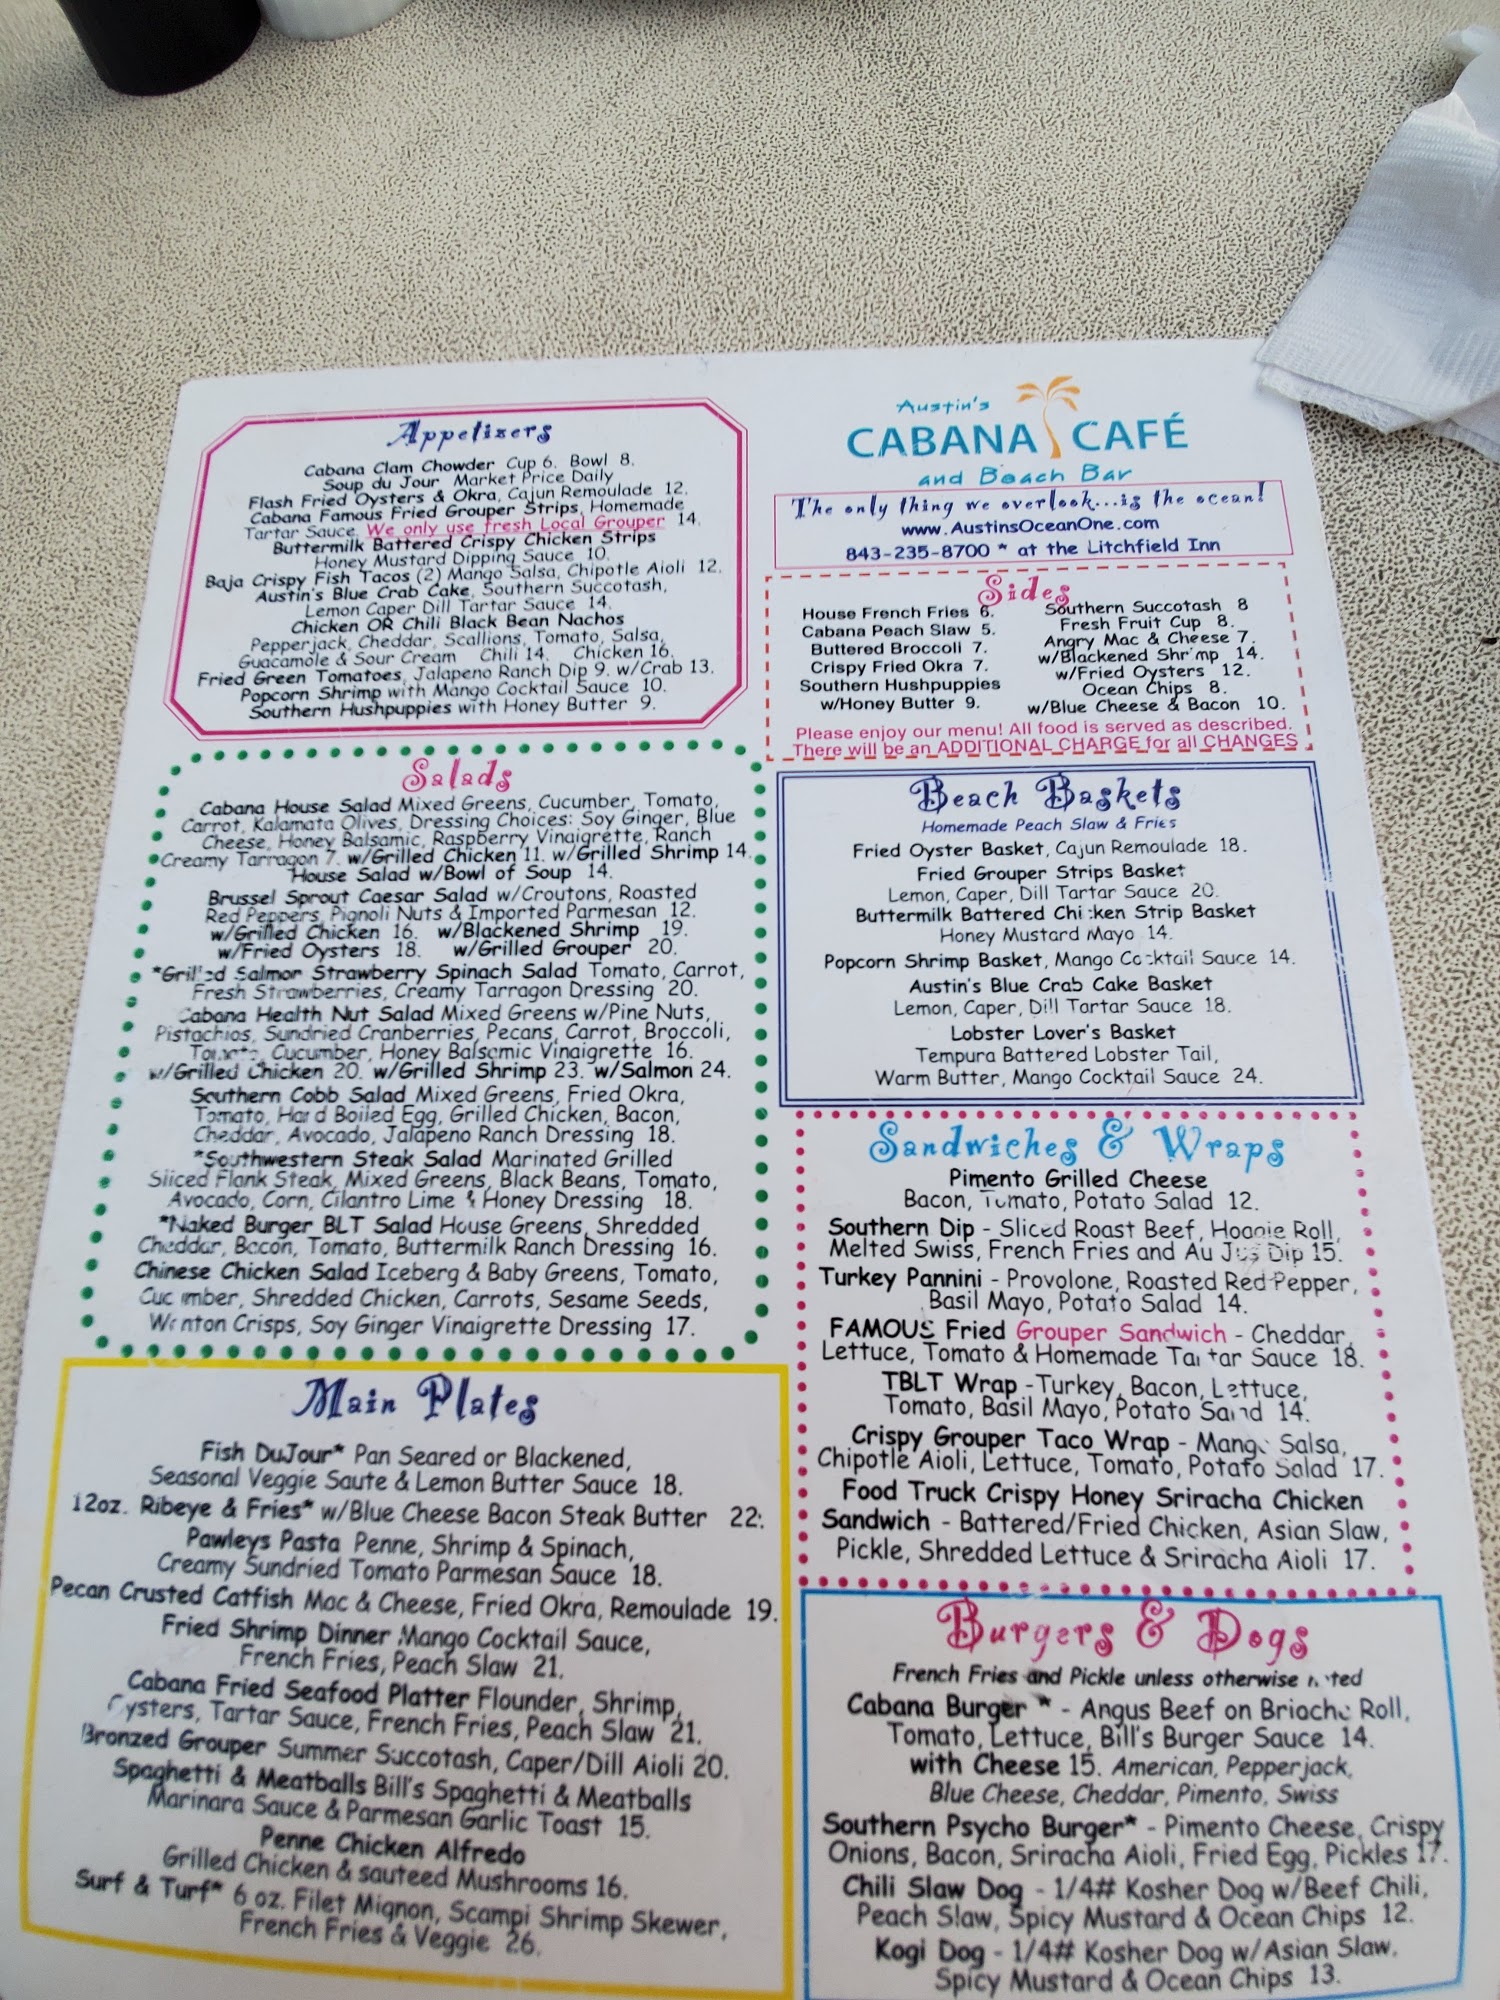 Appetizers
Cabana Clam Chowder Cup 6. Bowl 8.
Soup du Jour Market Price Daily
Flash Fried Oysters & Okra, Cajun Remoulade 12.
Cabana Famous Fried Grouper Strips, Homemade
Tartar Sauce. We only use fresh Local Grouper 14.
Buttermilk Battered Crispy Chicken Strips
Honey Mustard Dipping Sauce 10.
Baja Crispy Fish Tacos (2) Mango Salsa, Chipotle Aioli 12.
Austin's Blue Crab Cake, Southern Succotash,
Lemon Caper Dill Tartar Sauce 14.
Chicken OR Chili Black Bean Nachos
Pepperjack, Cheddar, Scallions, Tomato, Salsa,
Guacamole & Sour Cream Chili 14. Chicken 16.
Fried Green Tomatoes, Jalapeno Ranch Dip 9. w/Crab 13.
Popcorn Shrimp with Mango Cocktail Sauce 10.
Southern Hushpuppies with Honey Butter 9.
Austin's
CABANA CAFÉ
and Beach Bar
The only thing we overlook...is the ocean!
www.AustinsOceanOne.com
843-235-8700 * at the Litchfield Inn
Sides
House French Fries 6.
Cabana Peach Slaw 5.
Buttered Broccoli 7.
Crispy Fried Okra 7.
Southern Hushpuppies
w/Honey Butter 9.
Southern Succotash 8
Fresh Fruit Cup 8.
Angry Mac & Cheese 7.
w/Blackened Shrimp 14.
w/Fried Oysters 12.
Ocean Chips 8.
w/Blue Cheese & Bacon 10.
Please enjoy our menu! All food is served as described.
There will be an ADDITIONAL CHARGE for all CHANGES
Salads
Cabana House Salad Mixed Greens, Cucumber, Tomato,
Carrot, Kalamata Olives, Dressing Choices: Soy Ginger, Blue
Cheese, Honey Balsamic, Raspberry Vinaigrette, Ranch
Creamy Tarragon 7. w/Grilled Chicken 11. w/Grilled Shrimp 14.
House Salad w/Bowl of Soup 14.
Brussel Sprout Caesar Salad w/Croutons, Roasted
Red Peppers, Pignoli Nuts & Imported Parmesan 12.
w/Grilled Chicken 16. w/Blackened Shrimp 19.
w/Fried Oysters 18. w/Grilled Grouper 20.
*Grilled Salmon Strawberry Spinach Salad Tomato, Carrot,
Fresh Strawberries, Creamy Tarragon Dressing 20.
Cabana Health Nut Salad Mixed Greens w/Pine Nuts,
Pistachios, Sundried Cranberries, Pecans, Carrot, Broccoli,
Tomato, Cucumber, Honey Balsamic Vinaigrette 16.
w/Grilled Chicken 20. w/Grilled Shrimp 23. w/Salmon 24.
Southern Cobb Salad Mixed Greens, Fried Okra,
Tomato, Hard Boiled Egg, Grilled Chicken, Bacon,
Cheddar, Avocado, Jalapeno Ranch Dressing 18.
*Southwestern Steak Salad Marinated Grilled
Sliced Flank Steak, Mixed Greens, Black Beans, Tomato,
Avocado, Corn, Cilantro Lime & Honey Dressing 18.
*Naked Burger BLT Salad House Greens, Shredded
Cheddar, Bacon, Tomato, Buttermilk Ranch Dressing 16.
Chinese Chicken Salad Iceberg & Baby Greens, Tomato,
Cucumber, Shredded Chicken, Carrots, Sesame Seeds,
Wonton Crisps, Soy Ginger Vinaigrette Dressing 17.
Beach Baskets
Homemade Peach Slaw & Fries
Fried Oyster Basket, Cajun Remoulade 18.
Fried Grouper Strips Basket
Lemon, Caper, Dill Tartar Sauce 20.
Buttermilk Battered Chicken Strip Basket
Honey Mustard Mayo 14.
Popcorn Shrimp Basket, Mango Cocktail Sauce 14.
Austin's Blue Crab Cake Basket
Lemon, Caper, Dill Tartar Sauce 18.
Lobster Lover's Basket
Tempura Battered Lobster Tail,
Warm Butter, Mango Cocktail Sauce 24.
Sandwiches & Wraps
Pimento Grilled Cheese
Bacon, Tomato, Potato Salad 12.
Southern Dip - Sliced Roast Beef, Hoagie Roll,
Melted Swiss, French Fries and Au Jus Dip 15.
Turkey Pannini - Provolone, Roasted Red Pepper,
Basil Mayo, Potato Salad 14.
FAMOUS Fried Grouper Sandwich - Cheddar,
Lettuce, Tomato & Homemade Tartar Sauce 18.
TBLT Wrap - Turkey, Bacon, Lettuce,
Tomato, Basil Mayo, Potato Salad 14.
Crispy Grouper Taco Wrap - Mango Salsa,
Chipotle Aioli, Lettuce, Tomato, Potato Salad 17.
Food Truck Crispy Honey Sriracha Chicken
Sandwich - Battered/Fried Chicken, Asian Slaw,
Pickle, Shredded Lettuce & Sriracha Aioli 17.
Main Plates
Fish DuJour* Pan Seared or Blackened,
Seasonal Veggie Saute & Lemon Butter Sauce 18.
12oz. Ribeye & Fries* w/Blue Cheese Bacon Steak Butter 22.
Pawleys Pasta Penne, Shrimp & Spinach,
Creamy Sundried Tomato Parmesan Sauce 18.
Pecan Crusted Catfish Mac & Cheese, Fried Okra, Remoulade 19.
Fried Shrimp Dinner Mango Cocktail Sauce,
French Fries, Peach Slaw 21.
Cabana Fried Seafood Platter Flounder, Shrimp,
Oysters, Tartar Sauce, French Fries, Peach Slaw 21.
Bronzed Grouper Summer Succotash, Caper/Dill Aioli 20.
Spaghetti & Meatballs Bill's Spaghetti & Meatballs
Marinara Sauce & Parmesan Garlic Toast 15.
Penne Chicken Alfredo
Grilled Chicken & sauteed Mushrooms 16.
Surf & Turf* 6 oz. Filet Mignon, Scampi Shrimp Skewer,
French Fries & Veggie 26.
Burgers & Dogs
French Fries and Pickle unless otherwise noted
Cabana Burger * - Angus Beef on Brioche Roll,
Tomato, Lettuce, Bill's Burger Sauce 14.
with Cheese 15. American, Pepperjack,
Blue Cheese, Cheddar, Pimento, Swiss
Southern Psycho Burger* - Pimento Cheese, Crispy
Onions, Bacon, Sriracha Aioli, Fried Egg, Pickles 17.
Chili Slaw Dog - 1/4# Kosher Dog w/Beef Chili,
Peach Slaw, Spicy Mustard & Ocean Chips 12.
Kogi Dog - 1/4# Kosher Dog w/Asian Slaw,
Spicy Mustard & Ocean Chips 13.